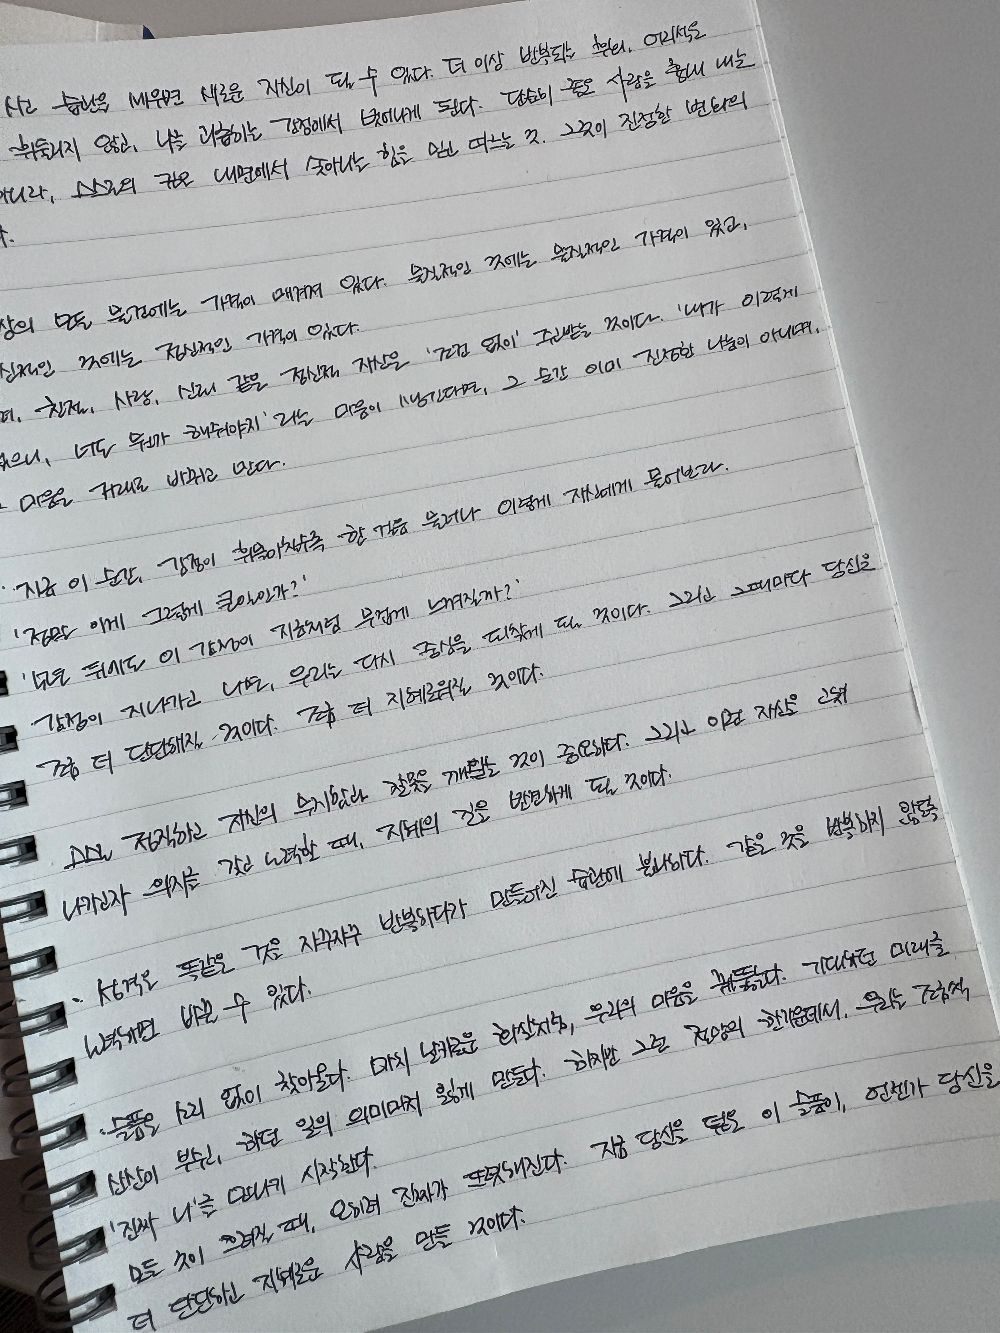 사고 습관을 배우면 새로운 자신이 될 수 있다. 더 이상 반복되는 후회, 어리석은
휘둘리지 않고, 나를 괴롭히는 감정에서 벗어나게 된다. 단순히 좋은 사람을 흉내 내는
아니라, 스스로의 깊은 내면에서 솟아나는 힘을 얻고 떠오르는 것. 그것이 진정한 변화의
다.
상의 모든 물건에는 가격이 매겨져 있다. 물질적인 것에는 물질적인 가격이 있고,
신적인 것에는 정신적인 가격이 있다.
며, 친절, 사랑, 신뢰 같은 정신적 자산은 '조건 없이' 주고받는 것이다. '내가 이렇게
으니, 너도 뭔가 해줘야지'라는 마음이 생긴다면, 그 순간 이미 진정한 나눔이 아니며,
마음은 거래로 바뀌고 만다.
· 지금 이 순간, 감정이 휘몰아칠수록 한 걸음 물러나 이렇게 자신에게 물어보라.
'정말 이게 그렇게 큰일인가?'
'년 뒤에도 이 감정이 지금처럼 무겁게 느껴질까?'
감정이 지나가고 나면, 우리는 다시 중심을 되찾게 될 것이다. 그리고 그때마다 당신은
조금 더 단단해질 것이다. 조금 더 지혜로워질 것이다.
스스로 정직하고 자신의 무지함과 잘못을 깨닫는 것이 중요하다. 그리고 이런 자신을 고쳐
나가고자 의지를 갖고 노력할 때, 지혜의 길을 발견하게 될 것이다.
· 성격은 똑같은 것을 자꾸자꾸 반복하다가 만들어진 습관에 불과하다. 같은 것을 반복하지 않도록
노력하면 바꿀 수 있다.
· 슬픔은 소리 없이 찾아온다. 마치 날카로운 화살처럼, 우리의 마음을 꿰뚫는다. 기대했던 미래를
산산이 부수고, 하던 일의 의미마저 잃게 만든다. 하지만 그런 절망의 한가운데에서, 우리는 조금씩
'진짜 나'를 만나기 시작한다.
모든 것이 흐려질 때, 오히려 진짜가 또렷해진다. 지금 당신을 덮은 이 슬픔이, 언젠가 당신을
더 단단하고 지혜로운 사람을 만들 것이다.